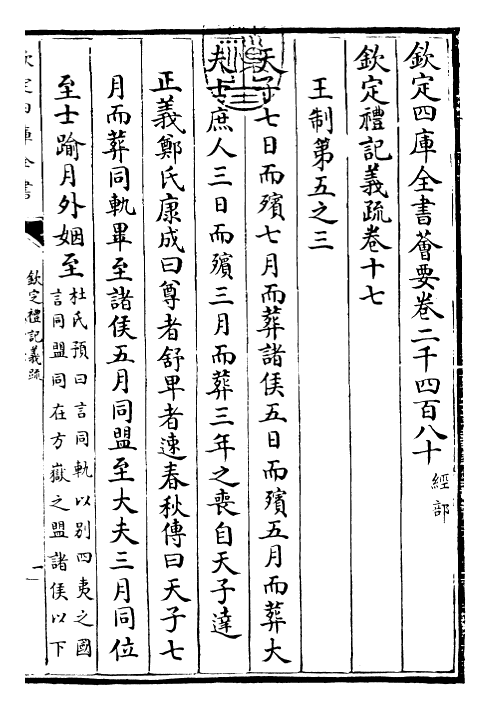 欽定四庫全書薈要卷二千四百八十
經部
欽定禮記義疏卷十七
王制第五之三
天子七日而殯七月而葬諸侯五日而殯五月而葬大
夫士庶人三日而殯三月而葬三年之喪自天子達
正義鄭氏康成曰尊者舒卑者速春秋傳曰天子七
月而葬同軌畢至諸侯五月同盟至大夫三月同位
至士踰月外姻至
杜氏預曰言同軌以別四夷之國
言同盟同在方嶽之盟諸侯以下
欽定四庫全書
欽定禮記義疏
一